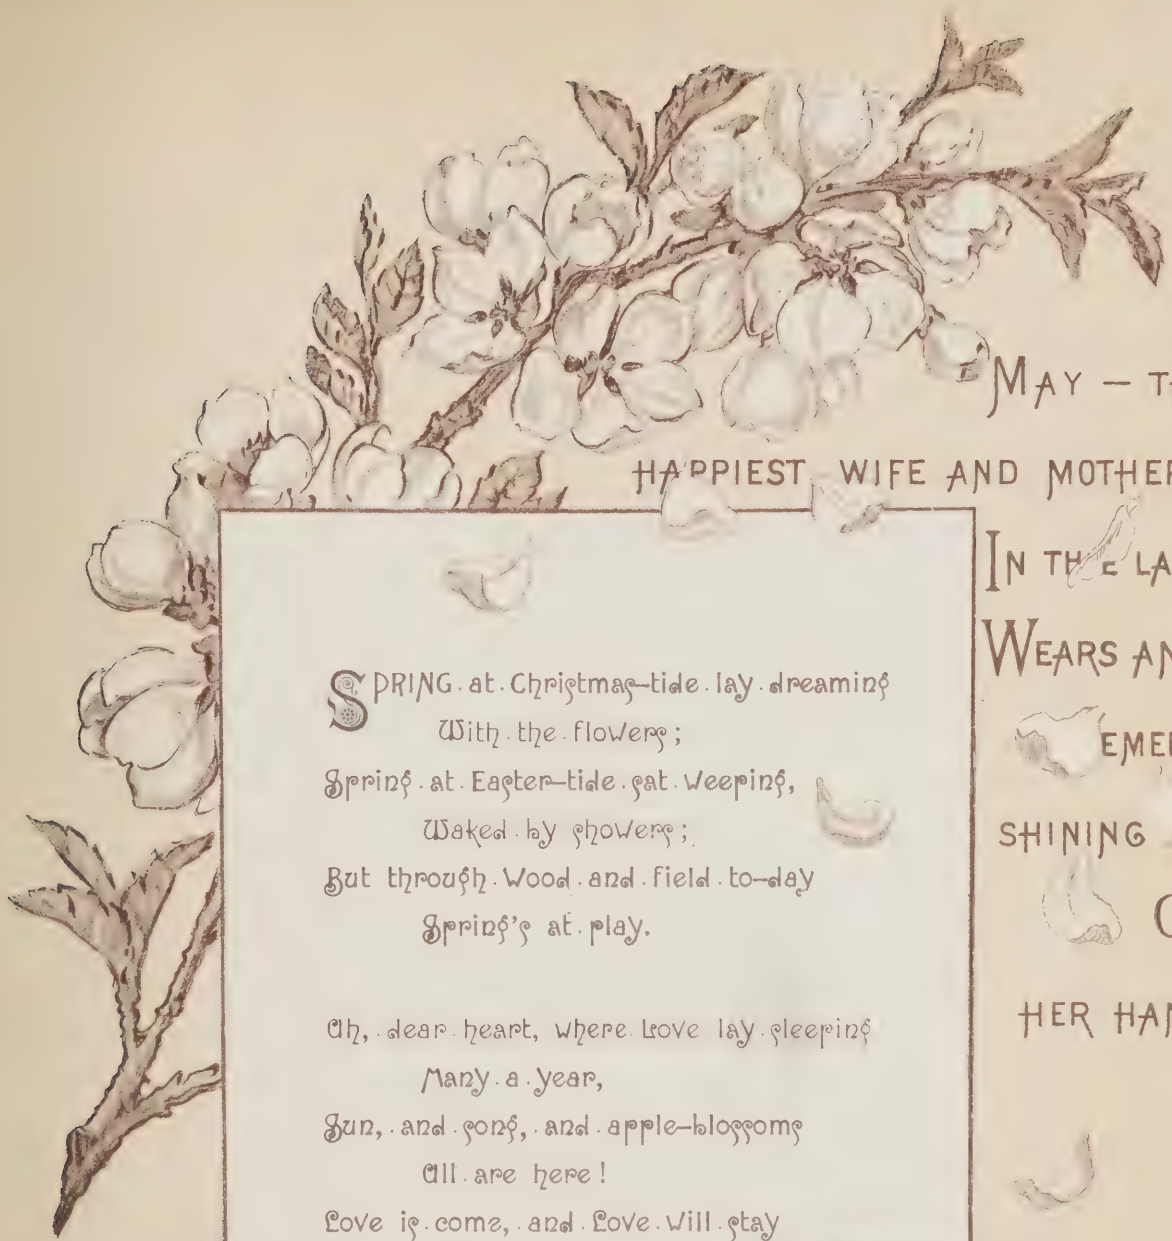 MAY –
HAPPIEST WIFE AND MOTHER
IN THE
WEARS
SHINING
HER
SPRING at Christmas-tide lay dreaming
With the flowers;
Spring at Easter-tide sat weeping,
Waked by showers;
But through wood and field to-day
Spring's at play.
Ah, dear heart, where Love lay sleeping
Many a year,
Sun, and song, and apple-blossoms
All are here!
Love is come, and Love will stay